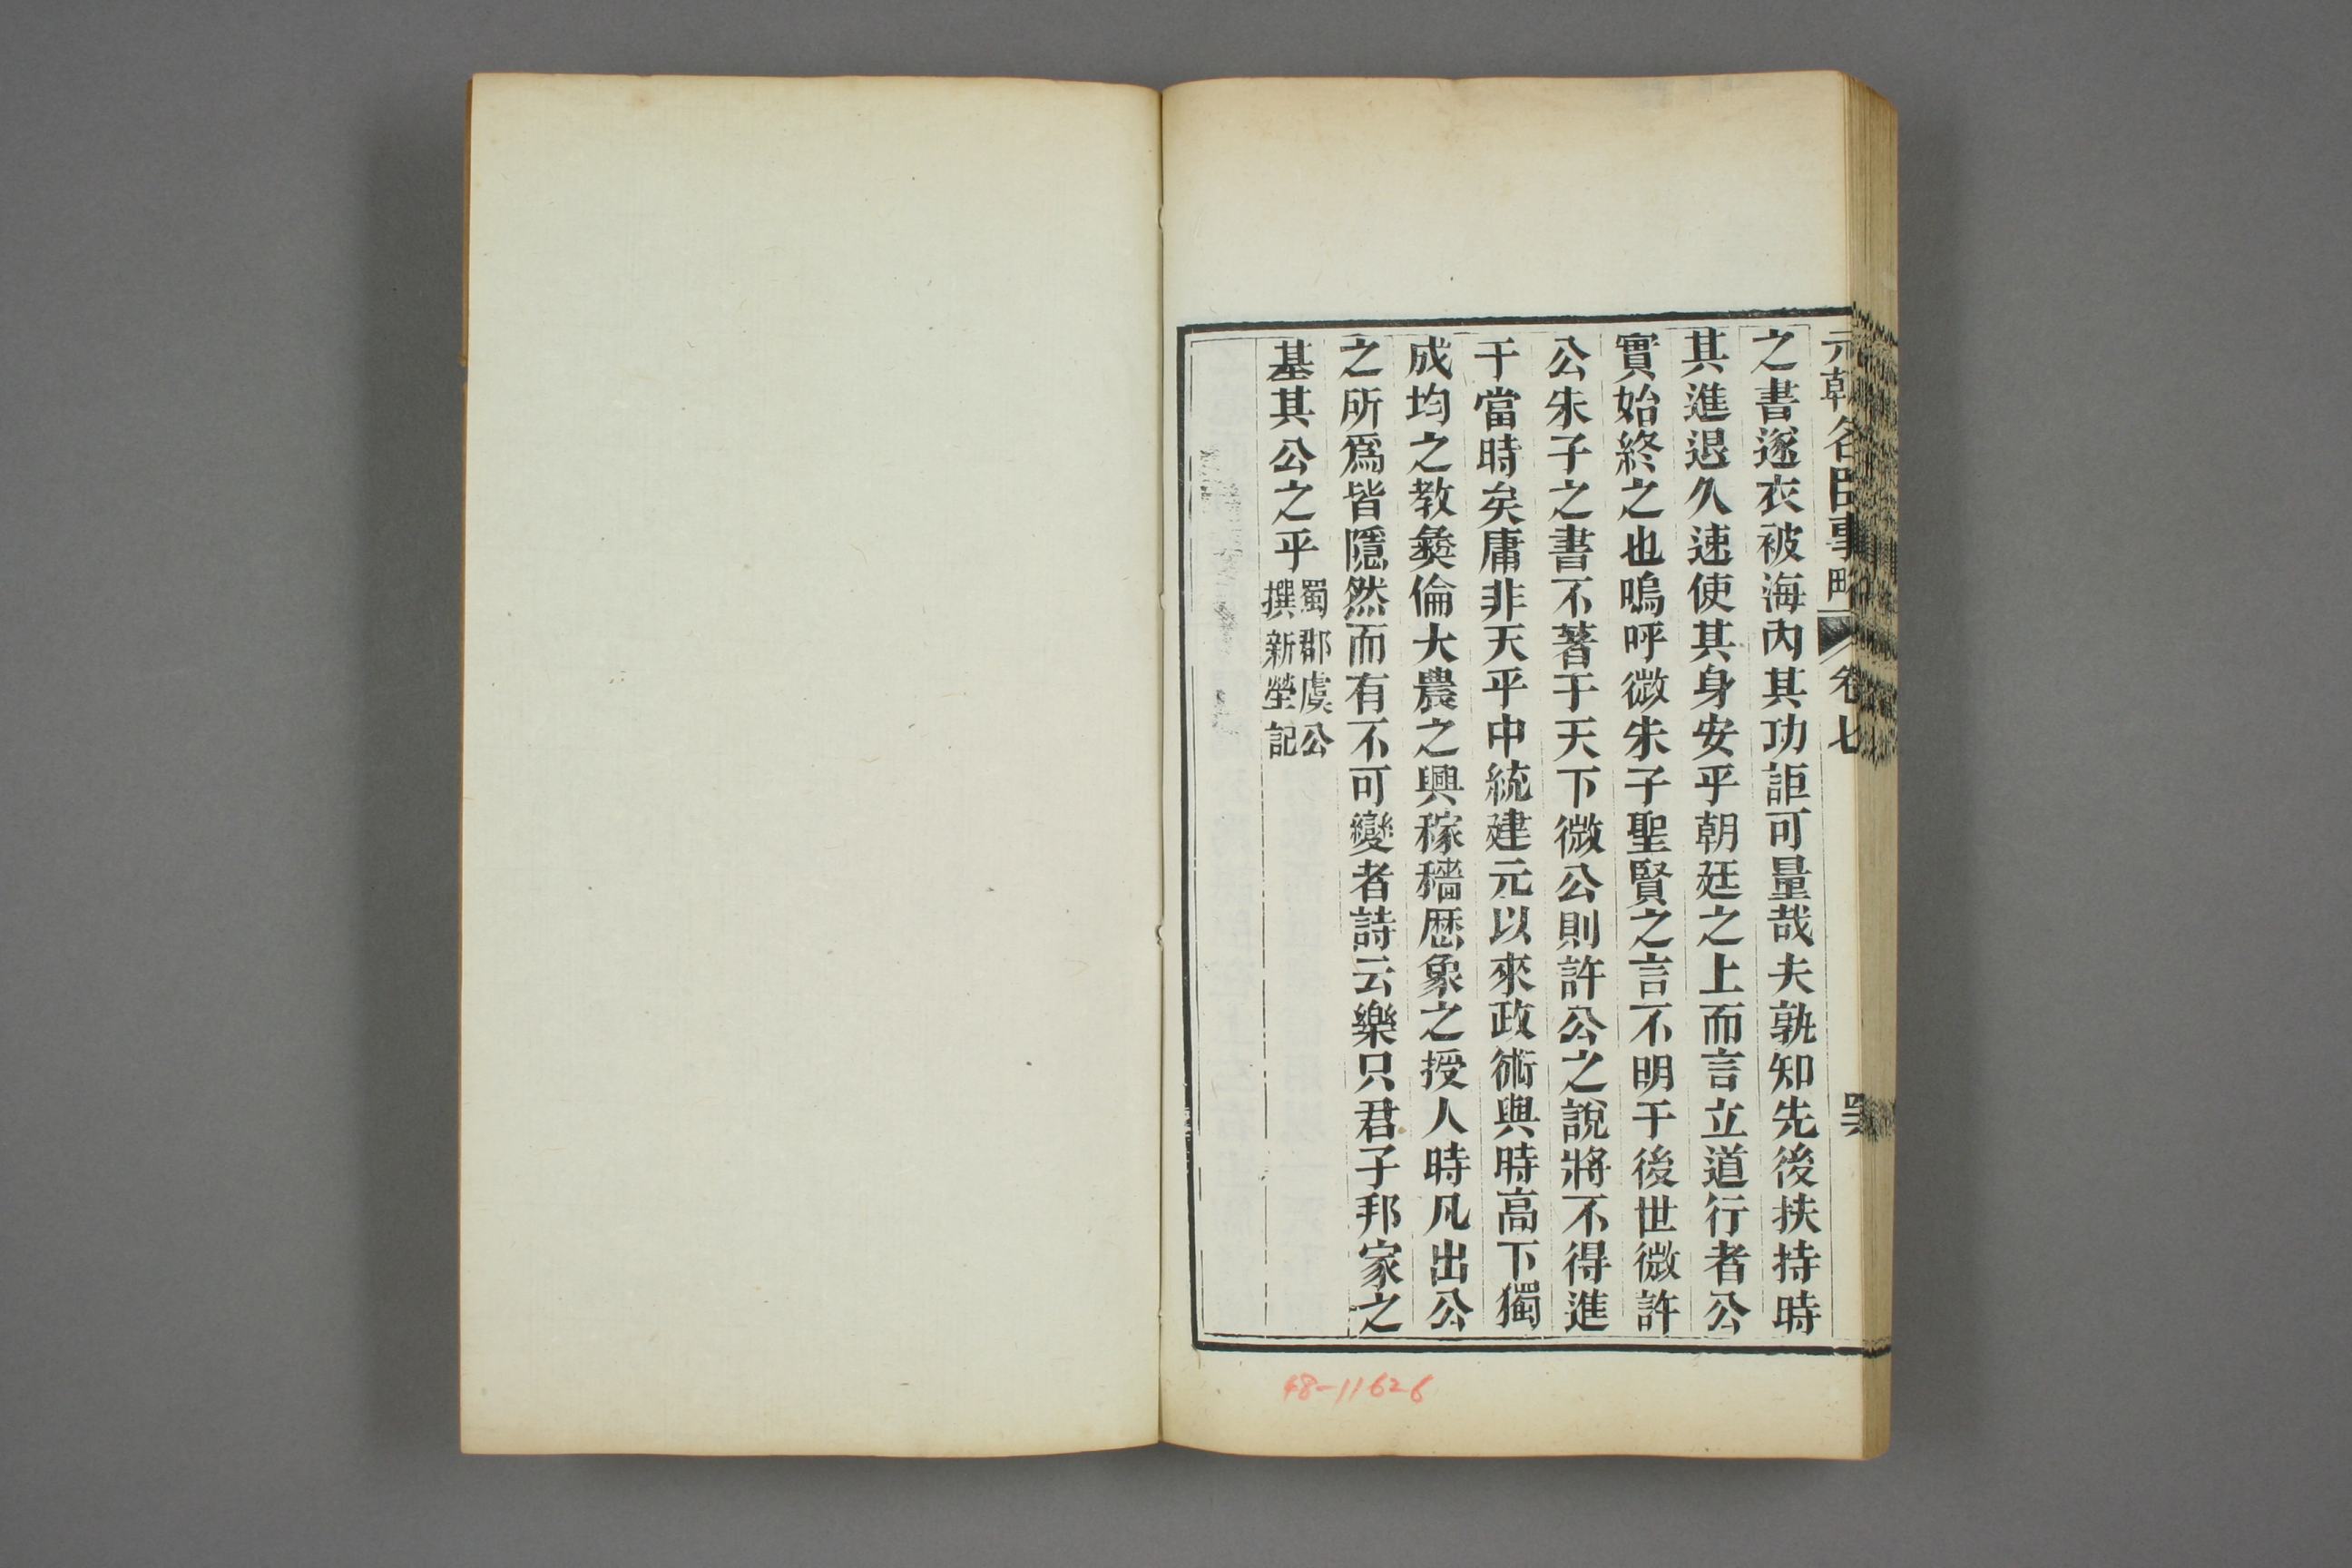 元朝名臣事略 卷七
之書遂衣被海內其功詎可量哉夫孰知先後扶持時
其進退久速使其身安乎朝廷之上而言立道行者公
實始終之也嗚呼微朱子聖賢之言不明于後世微許
公朱子之書不著于天下微公則許公之說將不得進
于當時矣庸非天乎中統建元以來政術與時高下獨
成均之教彝倫大農之興稼穡歷象之授人時凡出公
之所爲皆隱然而有不可變者詩云樂只君子邦家之
基其公之乎
蜀郡虞公
撰新塋記
48-11626